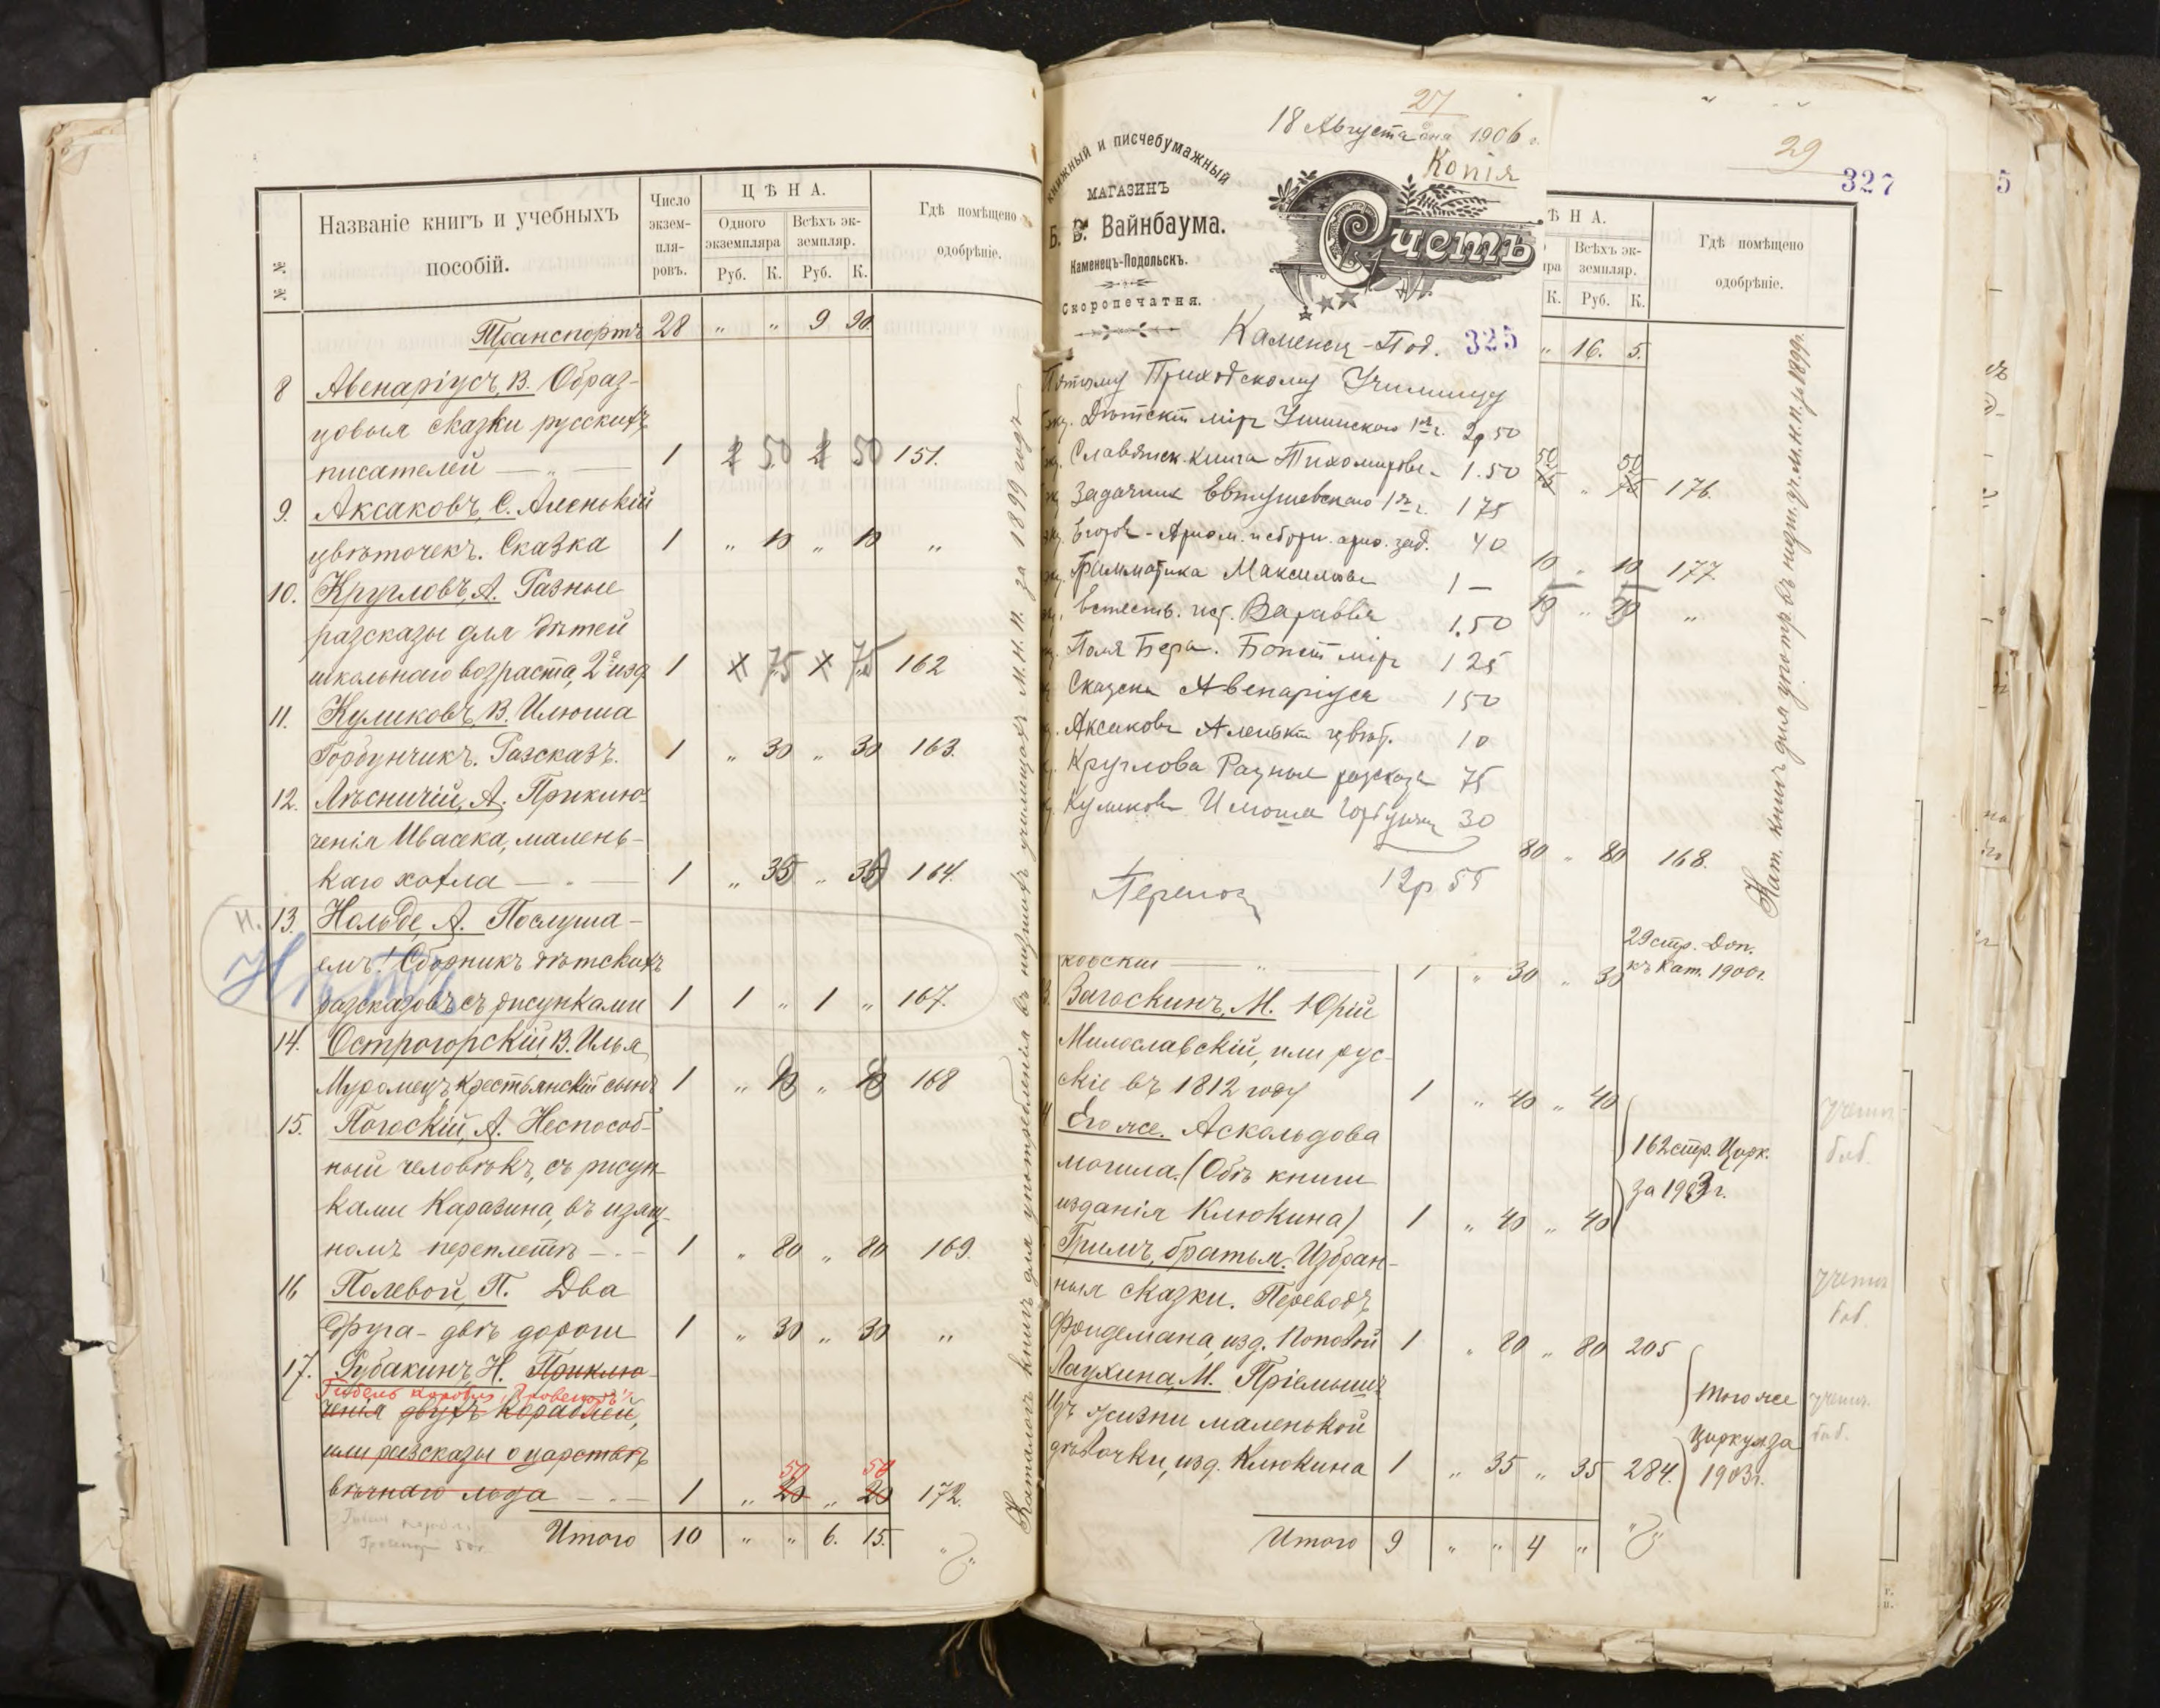 № №
Названіе книгъ и учебныхъ пособій.
Число экзем-пля-ровъ.
ЦѢНА.
Одного экземпляра
Всѣхъ эк-земпляр.
Руб. К. Руб. К.
Гдѣ помѣщено одобрѣніе.
Транспортъ 28 " " 9 90.
8 Авенаріусъ, В. Образ-
цовыя сказки русскихъ
писателей — " — 1 50 50 151.
9. Аксаковъ, С. Аленькій
цвѣточекъ. Сказка 1 " 10 " 10 "
10. Кругловъ, А. Разные
разсказы для дѣтей
школьнаго возраста, 2е изд 1 75 75 162
11. Куликовъ, В. Илюша
Горбунчикъ. Разсказъ. 1 " 30 " 30 163.
12. Лѣсничій, А. Приклю-
ченія Ивасека, малень-
каго хохла — " — 1 " 35 " 35 164.
н. 13. Нольде, А. Послуша-
емъ! Сборникъ дѣтскихъ
разсказовъ съ рисунками 1 1 " 1 " 167.
14. Острогорскій, В. Илья
Муромецъ, крестьянскій сынъ 1 " " 168
15. Погоскій, А. Неспособ-
ный человѣкъ, съ рисун-
ками Каразина, въ изящ-
номъ переплетѣ — " — 1 " 80 " 80 169.
16 Полевой, П. Два
друга - двѣ дороги 1 " 30 " 30 "
17. Рубакинъ, Н. Приклю-
Гибель корабля
ченія двухъ кораблей,
или разсказы о царствѣ
50 50
вѣчнаго льда — " — 1 " 20 " 20 172.
Итого 10 " " 6. 15.
Каталогъ книгъ для употребленія въ низшихъ училищахъ М. Н. П. за 1899 годъ
27
18 Августа дня 1906 г.
Копія
книжный и писчебумажный
МАГАЗИНЪ
Б. В. Вайнбаума.
Каменецъ-Подольскъ.
Скоропечатня.
Счетъ
Каменец-Под. 325
Пятому Приходскому Училищу
Дѣтскій міръ Ушинскаго 1я ч. 2р 50
Славянск. книга Тихомирова 1.50
Задачник Евтушевскаго 1я ч. 1 75
Егоров - Ариѳм. и сборн. ариѳ. зад. 40
Грамматика Максимова 1 —
Естеств. ист. Вараввы 1.50
Поля Бера. Божій міръ 1 25
Сказки Авенаріуса 1 50
Аксакова Аленькій цвѣт. 10
Круглова Разные разсказы 75
Куликова Илюша Горбунчик 30
Перенос 12р 55
29
327
5
Ѣ Н А.
Всѣхъ эк-земпляр.
К. Руб. К.
Гдѣ помѣщено одобрѣніе.
" 16. 5.
50 50
75 " 75 176.
10 " 10 177.
"
80 " 80 168.
Кат. книгъ для употр. въ низш. уч. М. Н. П. за 1899 г.
ковскій — " — 1 " 30 " 30
29 стр. Доп.
къ Кат. 1900 г.
Загоскинъ, М. Юрій
Милославскій, или рус-
скіе въ 1812 году 1 " 40 " 40
4 Его же. Аскольдова
могила. (Обѣ книги
изданія Клюкина) 1 " 40 " 40
162 стр. Цирк.
за 1903 г.
Гримъ, братья. Избран-
ныя сказки. Переводъ
Фридемана, изд. Поповой 1 " 80 " 80 205
Лаухина, М. Пріемышъ
Изъ жизни маленькой
дѣвочки, изд. Клюкина 1 " 35 " 35 284.
Того же
циркул за
1903 г.
учен. биб.
учен. биб.
учен. биб.
Итого 9 " " 4 "